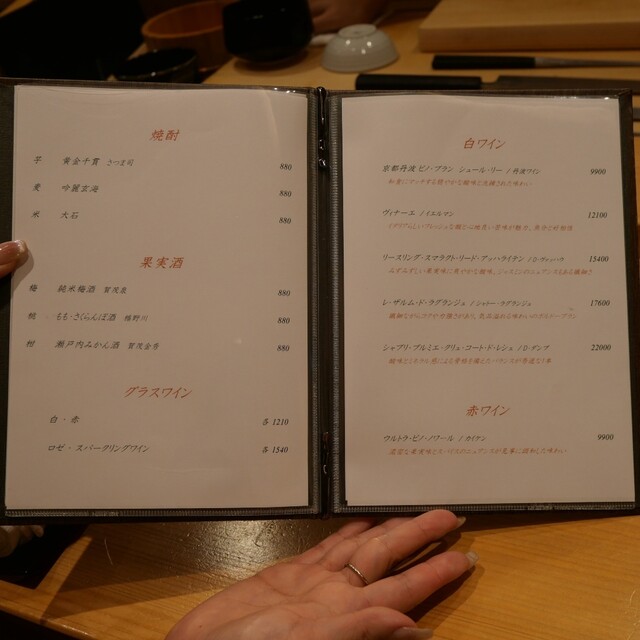 焼酎
芋 黄金千貫 さつま司 880
麦 吟麗玄海 880
米 大石 880
果実酒
梅 純米梅酒 賀茂泉 880
桃 もも・さくらんぼ酒 880
柑 瀬戸内みかん酒 賀茂金秀 880
グラスワイン
白・赤 各 1210
ロゼ・スパークリングワイン 各 1540
白ワイン
京都丹波 ピノ・ブラン シュール・リー / 丹波ワイン 9900
和食にマッチする軽やかな酸味と洗練された味わい
ヴィナーエ / イエルマン 12100
リースリング・スマラクト・リード・アッハライテン / 15400
レ・ザルム・ド・ラグランジュ / シャトー・ラグランジュ 17600
シャブリ・プルミエ・クリュ・コート・ド・レシェ / D・ダンプ 22000
赤ワイン
ウルトラ・ピノ・ノワール / カイケン 9900